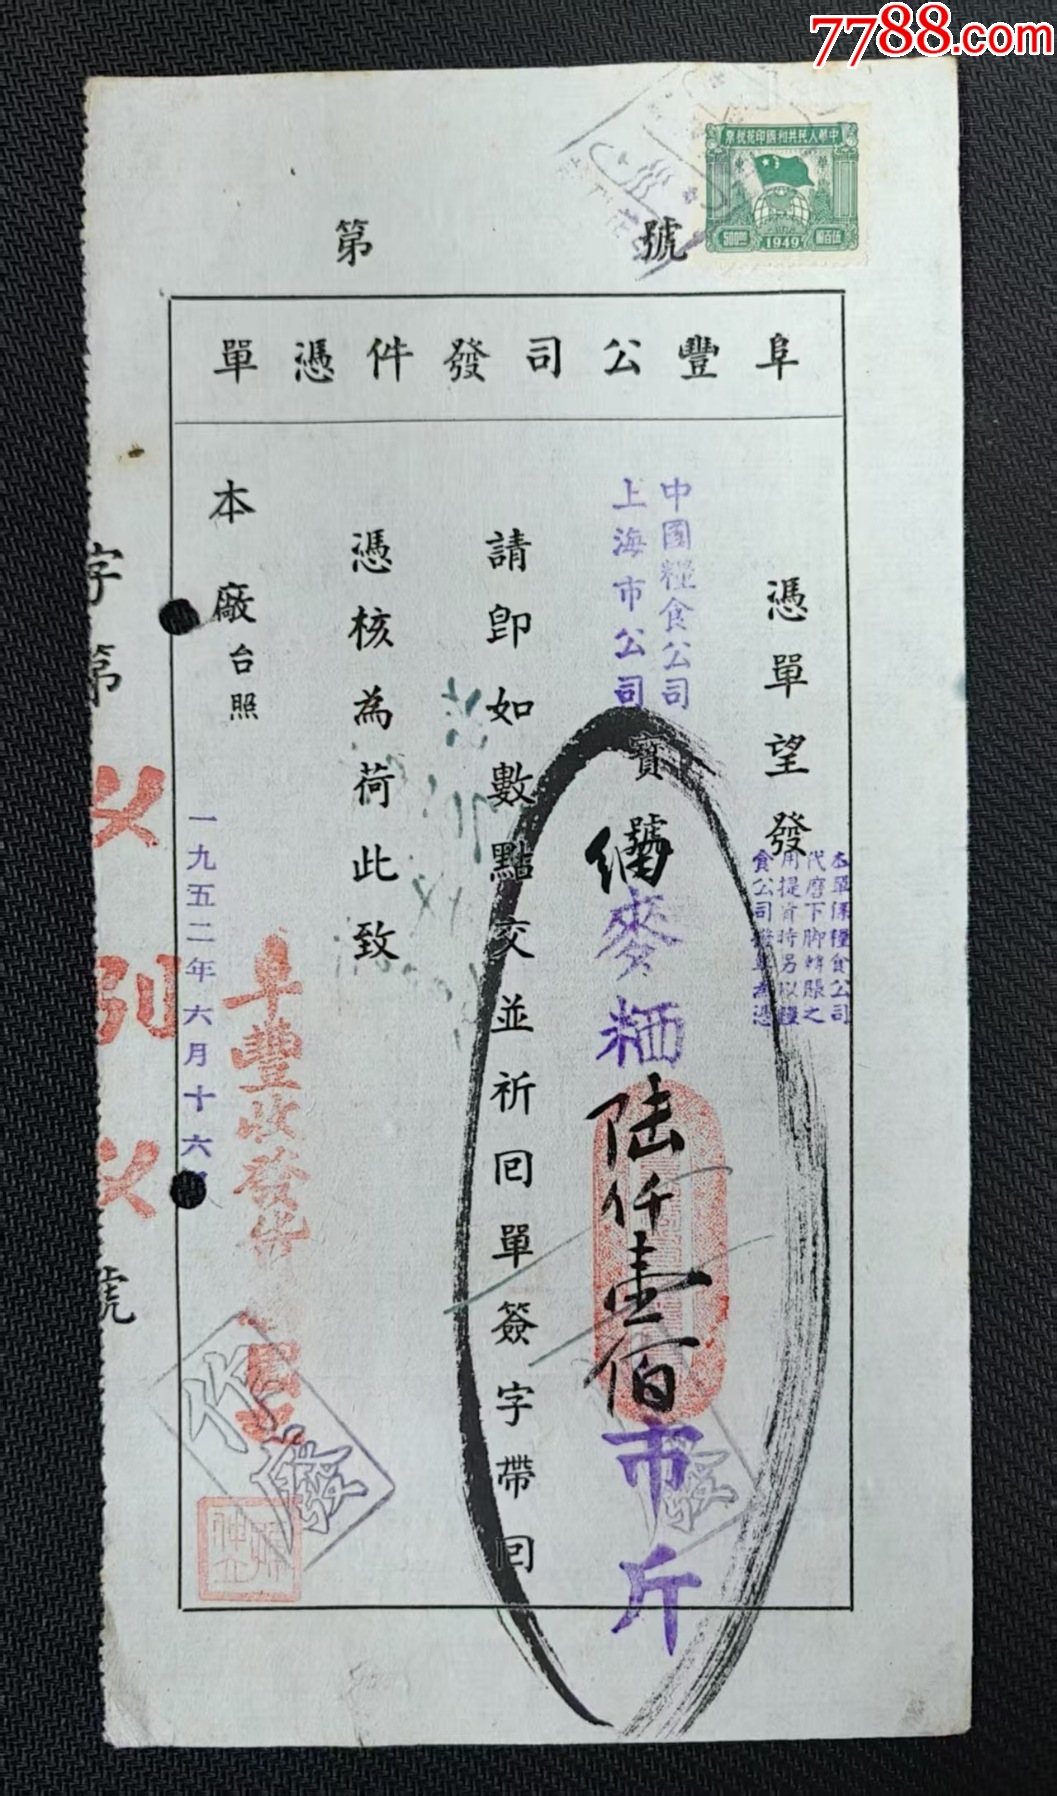 7788.com
中華人民共和國印花稅票
500圓
1949
伍百圓
第 號
阜豐公司發件憑單
憑單望發
本單係糧食公司
代磨下腳轉賬之
用提貨時另以糧
食公司發單為憑
中國糧食公司
上海市公司
寶號
麥粞
陸仟壹佰
市斤
請卽如數點交並祈回單簽字帶回
憑核為荷此致
本廠台照
阜豐收發貨
一九五二年六月十六
字第 號
發